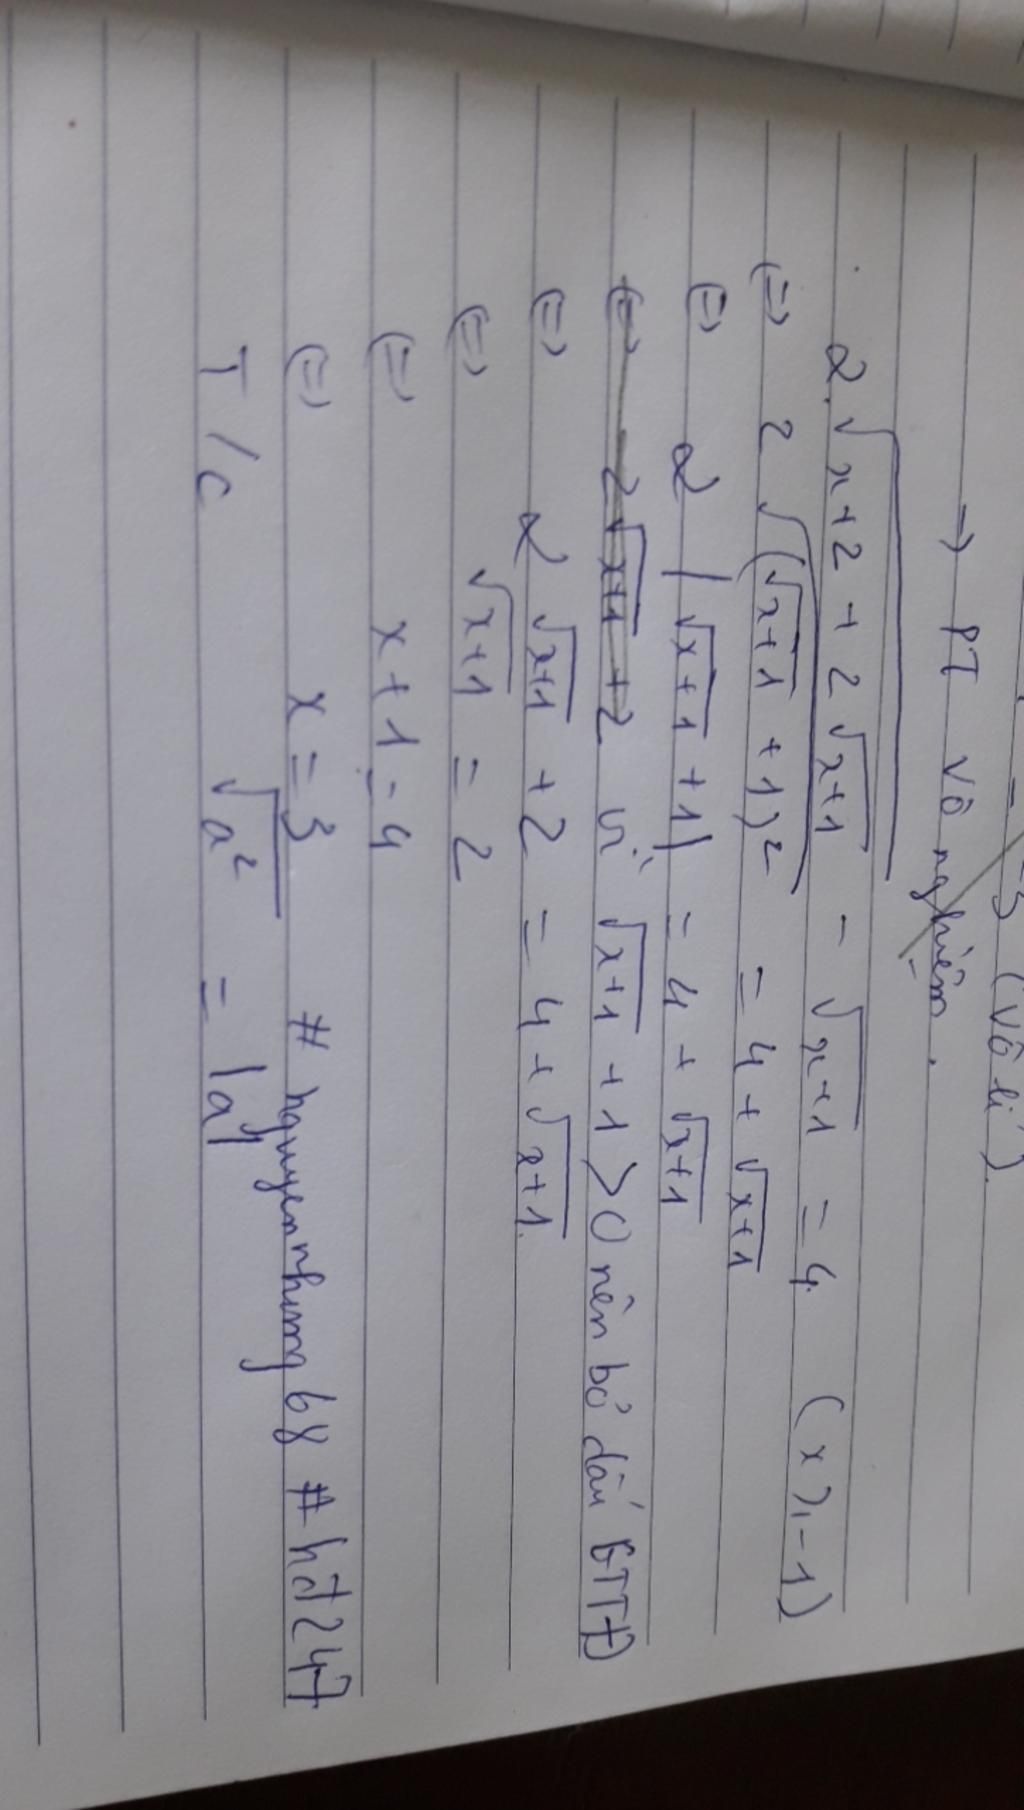 -3 (vô lí).
=> PT vô nghiệm.
2.√(x+2+2√(x+1)) - √(x+1) = 4. (x ≥ -1)
(=) 2√((√(x+1) + 1)²) = 4 + √(x+1)
(=) 2|√(x+1) + 1| = 4 + √(x+1)
(=) 2√(x+1) + 2 vì √(x+1) + 1 > 0 nên bỏ dấu GTTĐ
(=) 2√(x+1) + 2 = 4 + √(x+1).
(=) √(x+1) = 2
(=) x+1 = 4
(=) x = 3 # nguyennhung68 #hd247
T/c √(a²) = |a|